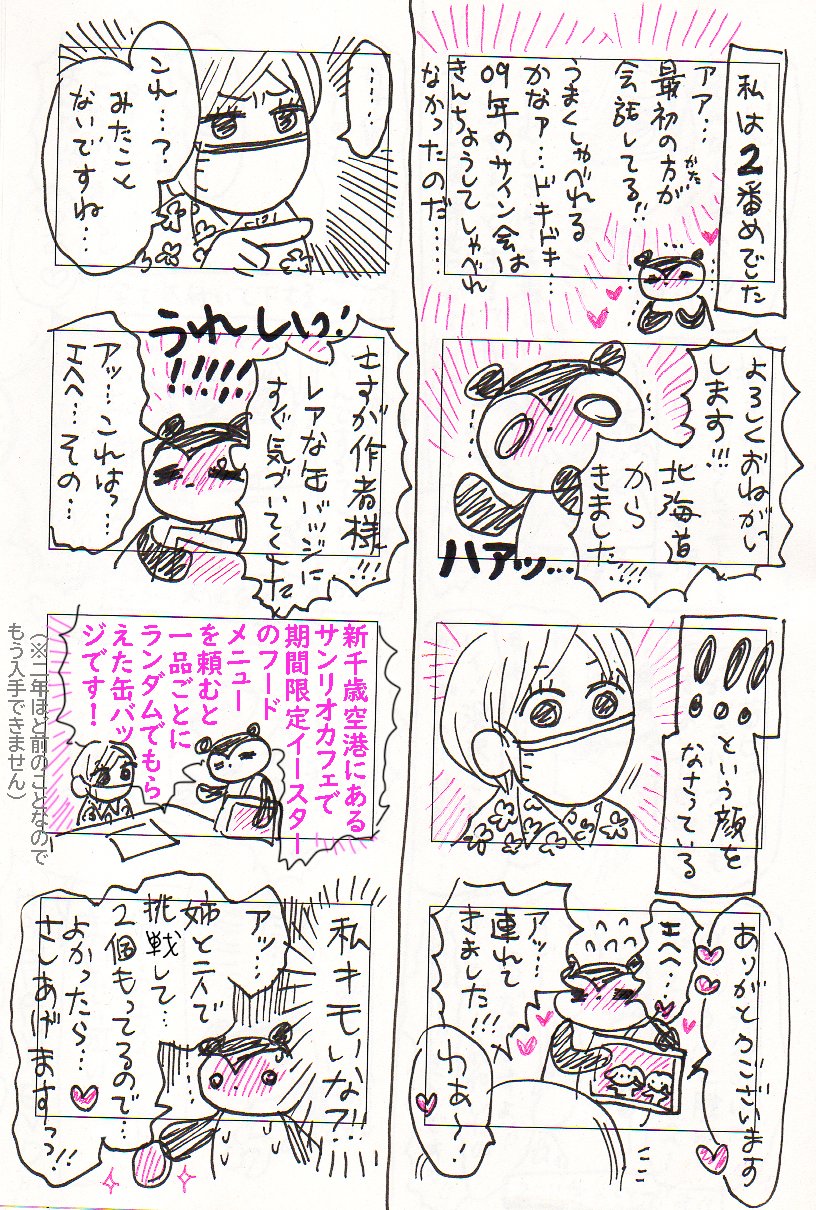 私は2番めでした
アア…
最初の方(かた)が
会話してる!!
うまくしゃべれる
かなァ…ドキドキ…
09年のサイン会は
きんちょうしてしゃべれ
なかったのだ……
よろしくおねがい
します!!!
北海道
から
きました
…!!!!
ハアッ…
!!!!
…
という顔を
なさっている
ありがとうございます
エヘヘ…
アッ…
連れて
きました!!!
わあ〜!
……
これ…?
みたこと
ないですね…
うれしいっ!
!!!!!
さすが作者様!!!
レアな缶バッジに
すぐ気づいてくれた
アッ…これはっ…
エヘヘ…その…
新千歳空港にある
サンリオカフェで
期間限定イースター
のフード
メニュー
を頼むと
一品ごとに
ランダムでもら
えた缶バッ
ジです!
(※二年ほど前のことなので
もう入手できません)
私キモいな?!
アッ…
姉と二人で
挑戦して…
2個もってるので…
よかったら…
さしあげますっっ!!